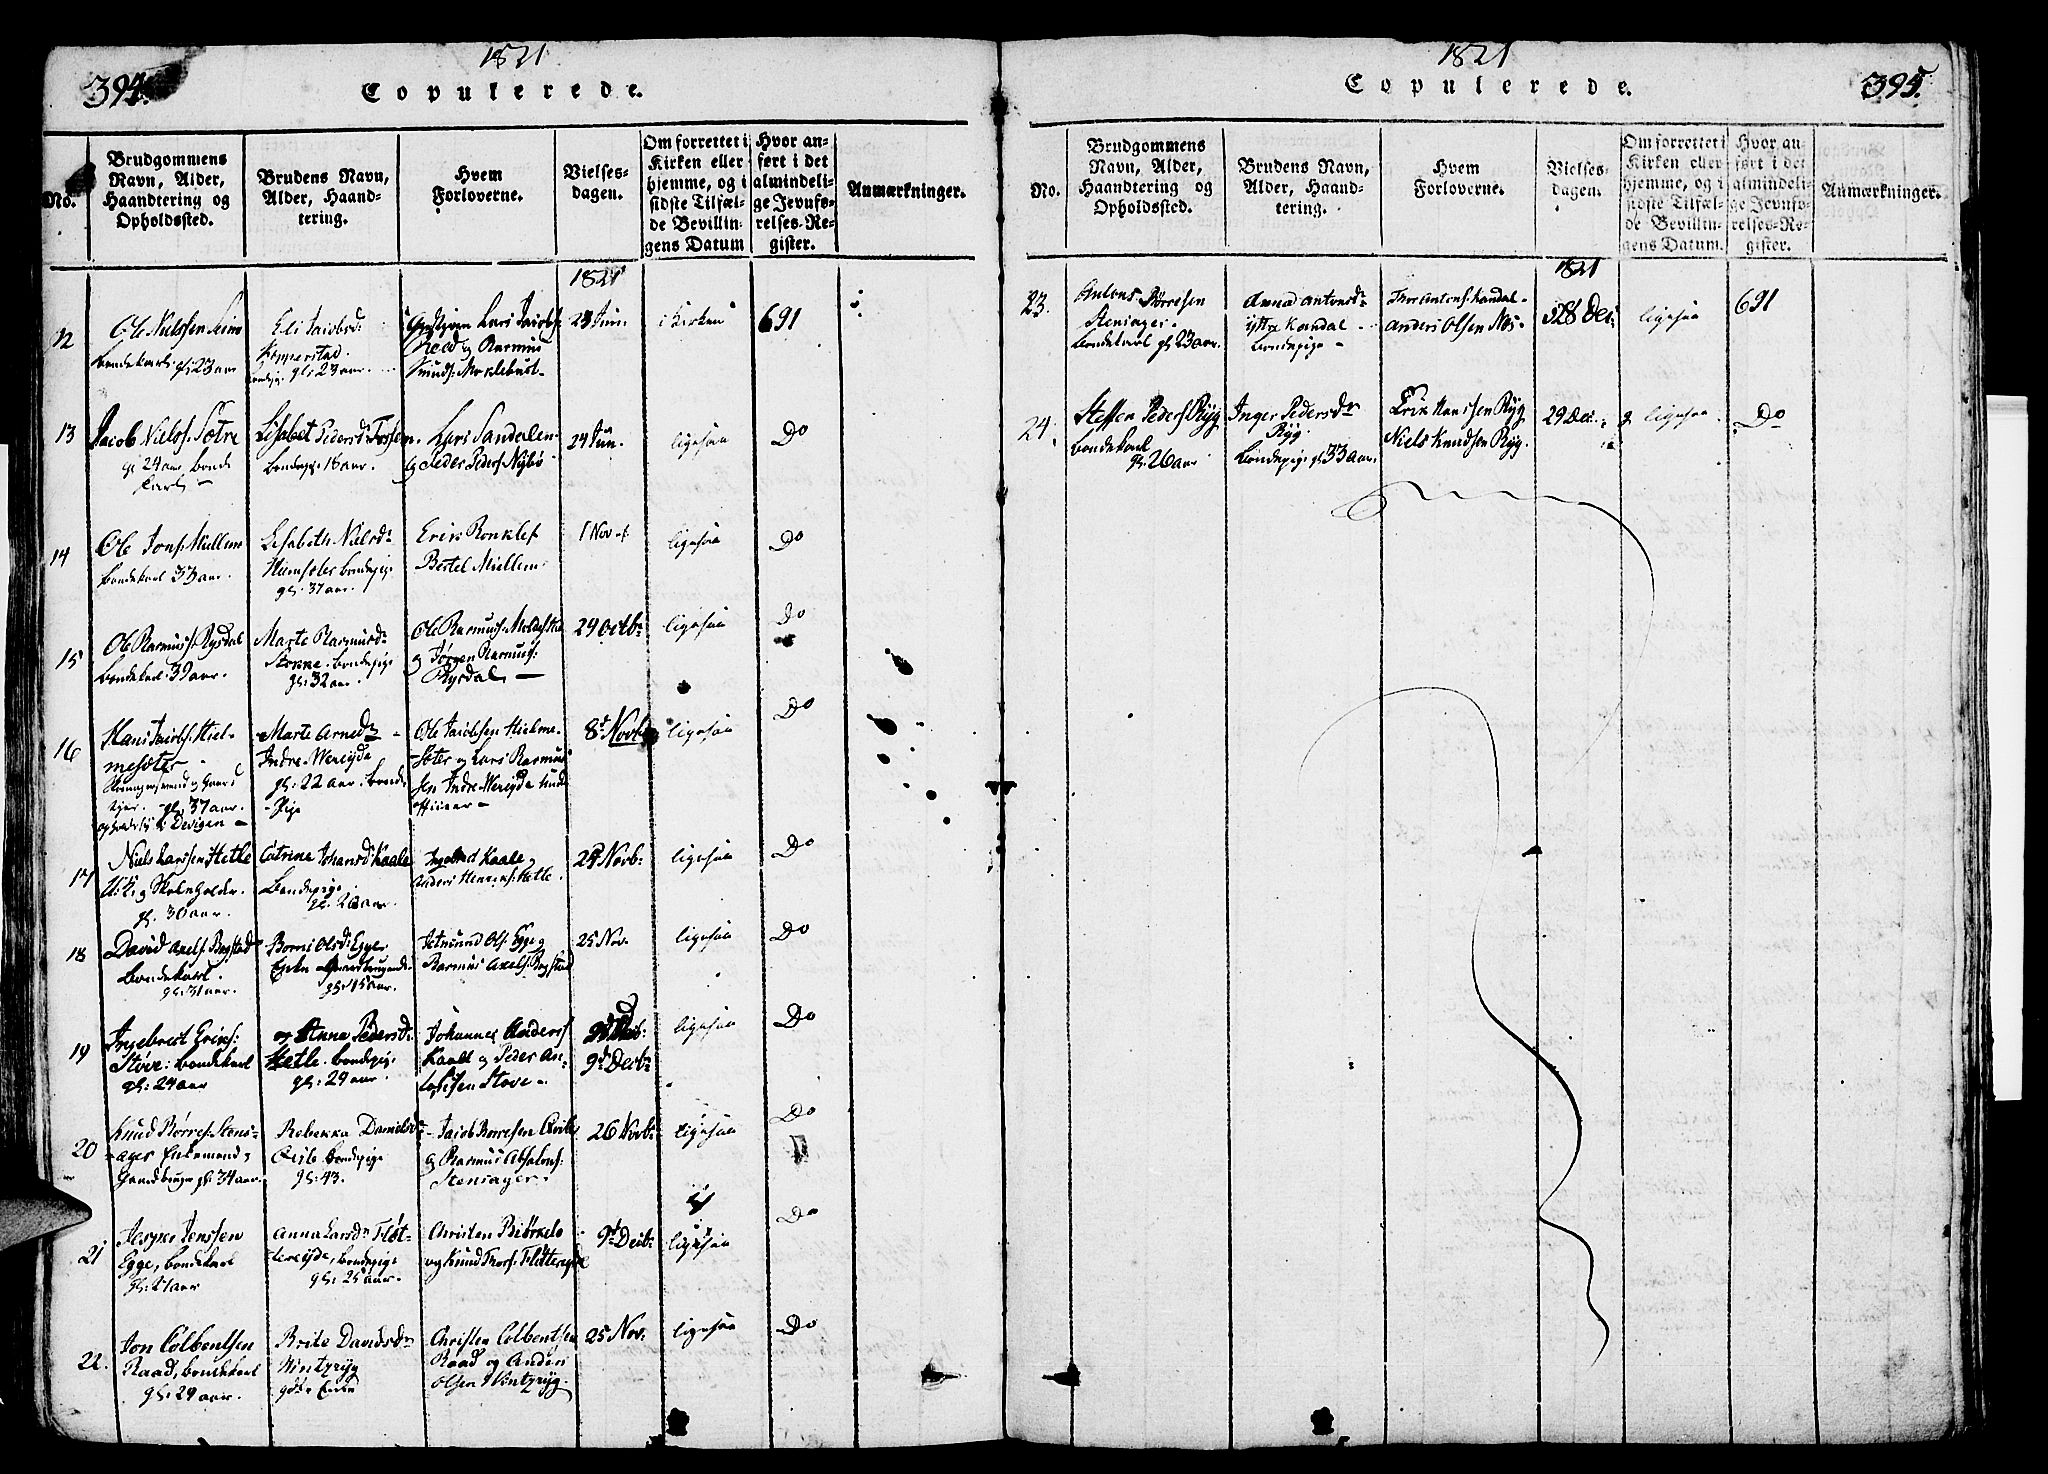 394.
1821
Copulerede.
No.
Brudgommens Navn, Alder, Haandtering og Opholdssted.
Brudens Navn, Alder, Haandtering.
Hvem Forloverne.
Vielsesdagen.
Om forrettet i Kirken eller hjemme, og i sidste Tilfælde Bevillingens Datum
Hvor anført i det almindelige Jevnførelses-Register.
Anmærkninger.
1821
12
Ole Nielssen
bondekarl gl: 23 aar
Eli Jacobsd:
Kopperstad
gl: 23 aar.
Lars Jacobs:
og Rasmus
Knuds: Myklebust
Jun.
i Kirken
691
13
Jacob Niels: Sætre
gl 24 aar bonde
karl
Lisabet Pedersd: Fossem.
bondepige 18 aar.
Lars Sandalen
og Peder Peders: Nybø
24 Jun.
ligesaa
Do
14
Ole Jons: Mullem
bondekarl 33 aar.
Lisabeth Nielsd:
bondepig
gl. 37 aar.
Erik Ronklef
Bertel Mullem
1 Nov.
ligesaa
Do
15
Ole Rasmus: Rysdal
bondekarl 39 aar.
Marte Rasmusd:
Stokke bondepige
gl: 32 aar.
Ole Rasmus:
og Jørgen Rasmus:
Rysdal
29 Octbr
ligesaa
Do
16
Hans Jacobs: Hiel-
mesæter
gl. 37 aar.
Devigen
Marte Arnedr
Indre Wereyde
gl: 22 aar. bonde
Pige
Ole Jacobsen Hielme-
sæter og Lars Rasmus
sen Indre Wereyde Und
officeer
8d Novb
ligesaa
Do
17
Niels Larssen Hetle
og Skoleholder.
gl. 30 aar.
Catrina Johansd: Kaale
bondepige
Ingebrict Kaale
Anders Henriks: Hetle.
Novb:
ligesaa
Do
18
David Axels: Bogstad
bondekarl.
gl: 31 aar.
Borni Olsd: Egge
Enke
Jetmund Ols: Egge og
Rasmus Axels: Bogstad
25 Nov.
ligesaa
Do
19
Ingebrict Eriks:
Støve: bondekarl
gl: 24 aar
og Anna Pedersd:
Hetle. bondepige
gl: 29 aar.
Johannes Anders
Kaale og Peder An-
Støve
9d Decbr
ligesaa
Do
20
Knud Børres: Stens-
ager Enkemand og
Gaardbruger gl: 34 aar.
Rebekka Danielsd
bondepige
gl: 43.
Jacob Børresen
og Rasmus Absalons:
Stensager.
26 Novb:
ligesaa
Do
21
Jesper Jenssen
Egge, bondekarl
gl: 27 aar
Anna Larsdr Fløt-
tereyde, bondepige
gl: 25 aar.
Christen Biørkelo
og Knud Thors: Fløttereyde
9d Decbr
ligesaa
Do
22.
Jon Colbentsen
Raad, bondekarl
gl: 29 aar.
Brite Davidsdr
Wintyryg
Christen Colbentsen
Raad og Anders
Olsen Wintyryg.
25 Nov:
ligesaa
Do
395.
1821
Copulerede.
No.
Brudgommens Navn, Alder, Haandtering og Opholdssted.
Brudens Navn, Alder, Haandtering.
Hvem Forloverne.
Vielsesdagen.
Om forrettet i Kirken eller hjemme, og i sidste Tilfælde Bevillingens Datum.
Hvor anført i det almindelige Jevnførelses-Register.
Anmærkninger.
1821
23.
Antons Børresen
Stensager
bondekarl gl. 23 aar.
Anna Antonsdr
yttre Kandal
bondepige
Thor Antons: Kandal
Anders Olsen Nøs
28 Dec:
ligesaa
691
24.
Steffen Peders: Ryg
bondekarl
gl: 26 aar
Inger Pedersdr
Ryg
bondepige gl: 33 aar.
Erik Hanssen Ryg
Niels Knudsen Ryg.
29 Dec:
ligesaa
Do